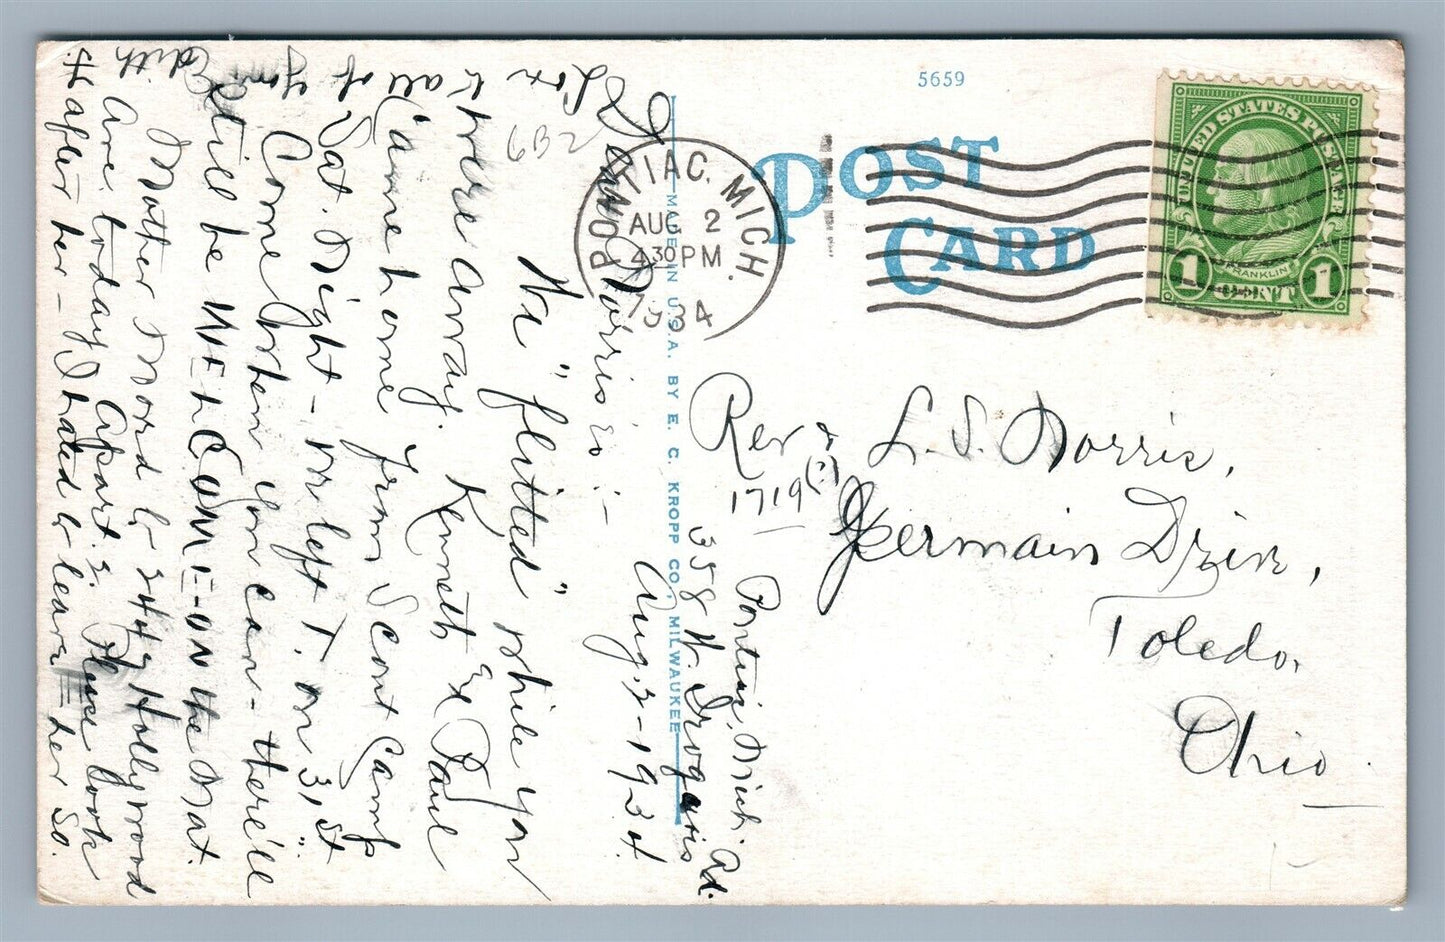 5659
POST
CARD
UNITED STATES POSTAGE
FRANKLIN
1 CENT 1
PONTIAC, MICH.
AUG 2
430 PM
1934
MADE IN U.S.A. BY E. C. KROPP CO., MILWAUKEE
6B2
Rev & L. S. Norris,
1719(?) Germain Drive,
Toledo,
Ohio.
Pontiac, Mich.
358 W. Iroquois Rd.
Aug. 2-1934.
Dear Norris'es:-
We "flitted" while you
were away. Kenneth & Paul
came home from Scout Camp
Sat. Night - We left T. on 31st".
Come when you can - there'll
still be WELCOME-ON the Mat.
Mother Ford is 344 Hollywood
Ave. today Apart. 2. Please look
after her - I hated to leave her so.
Love to all of you
Edith H.